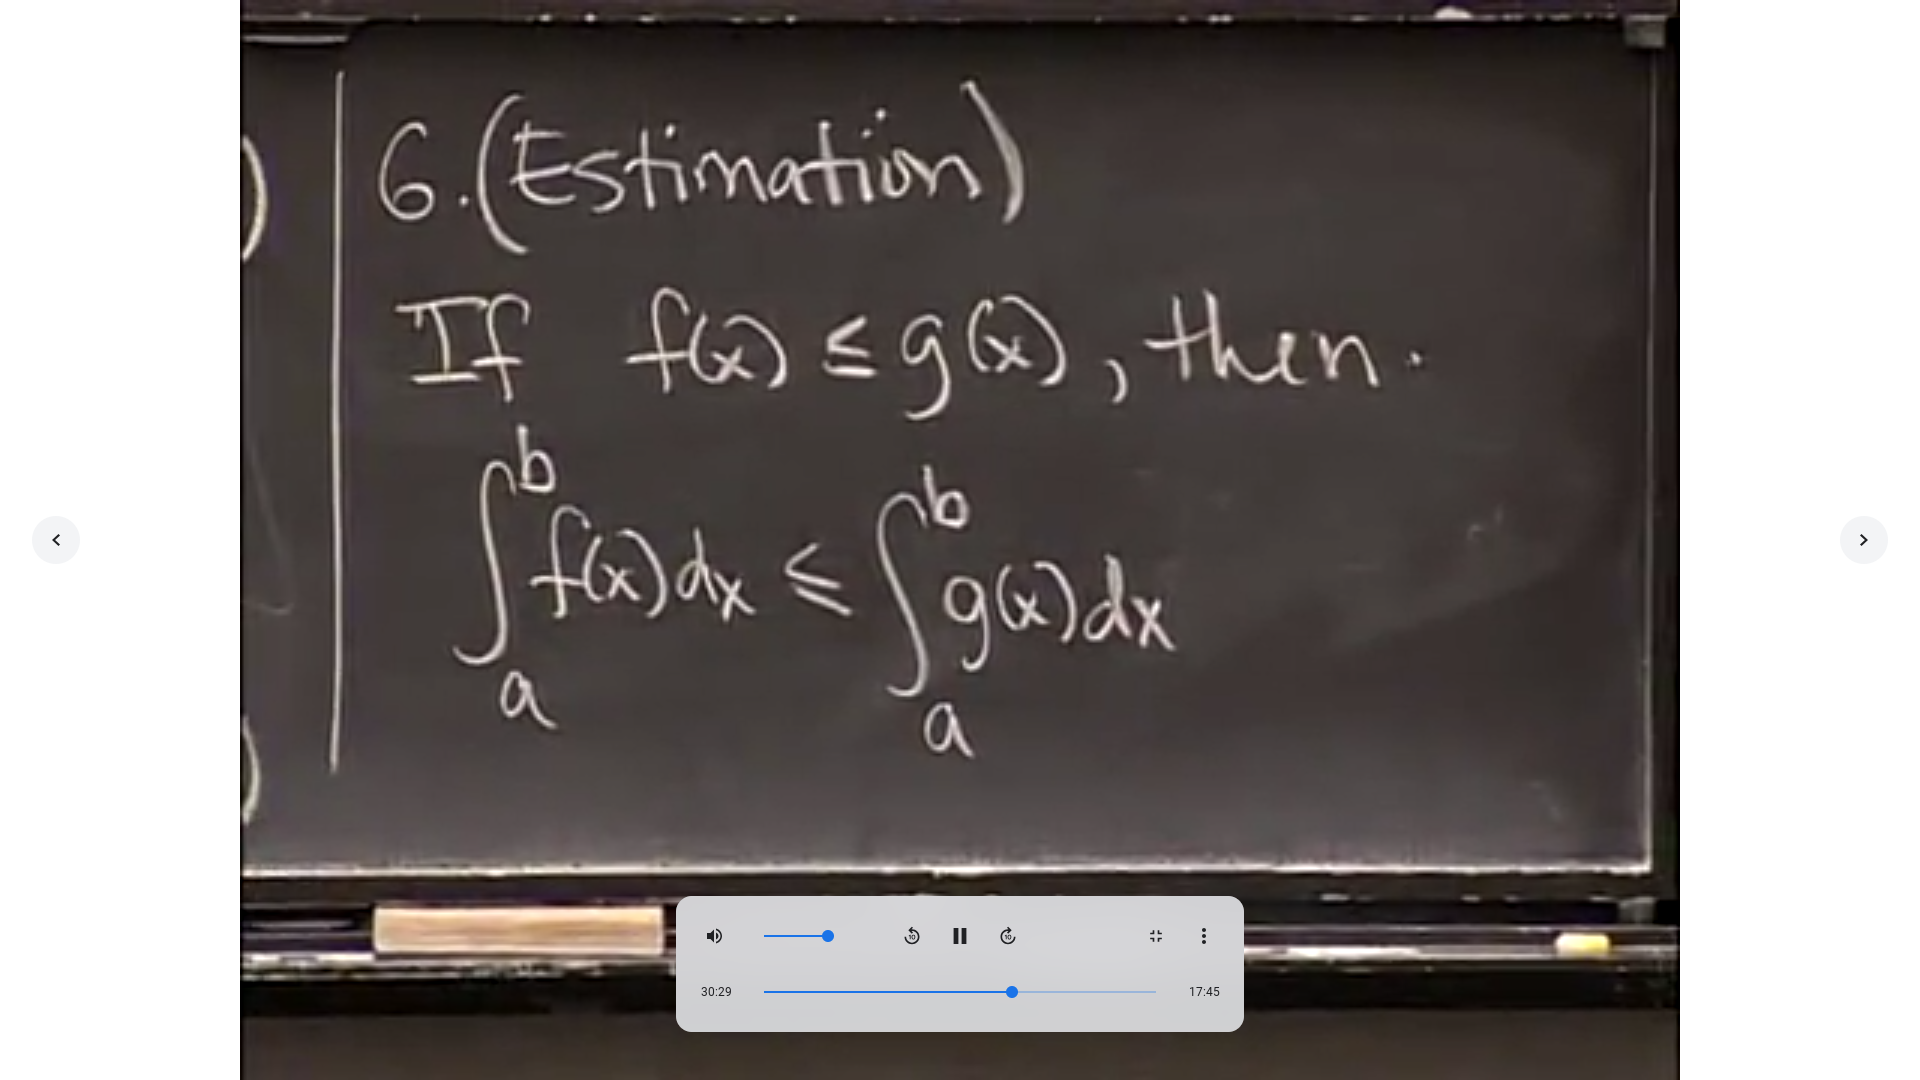 6. (Estimation)
If f(x) ≤ g(x), then.
∫_a^b f(x)dx ≤ ∫_a^b g(x)dx
10
10
30:29
17:45